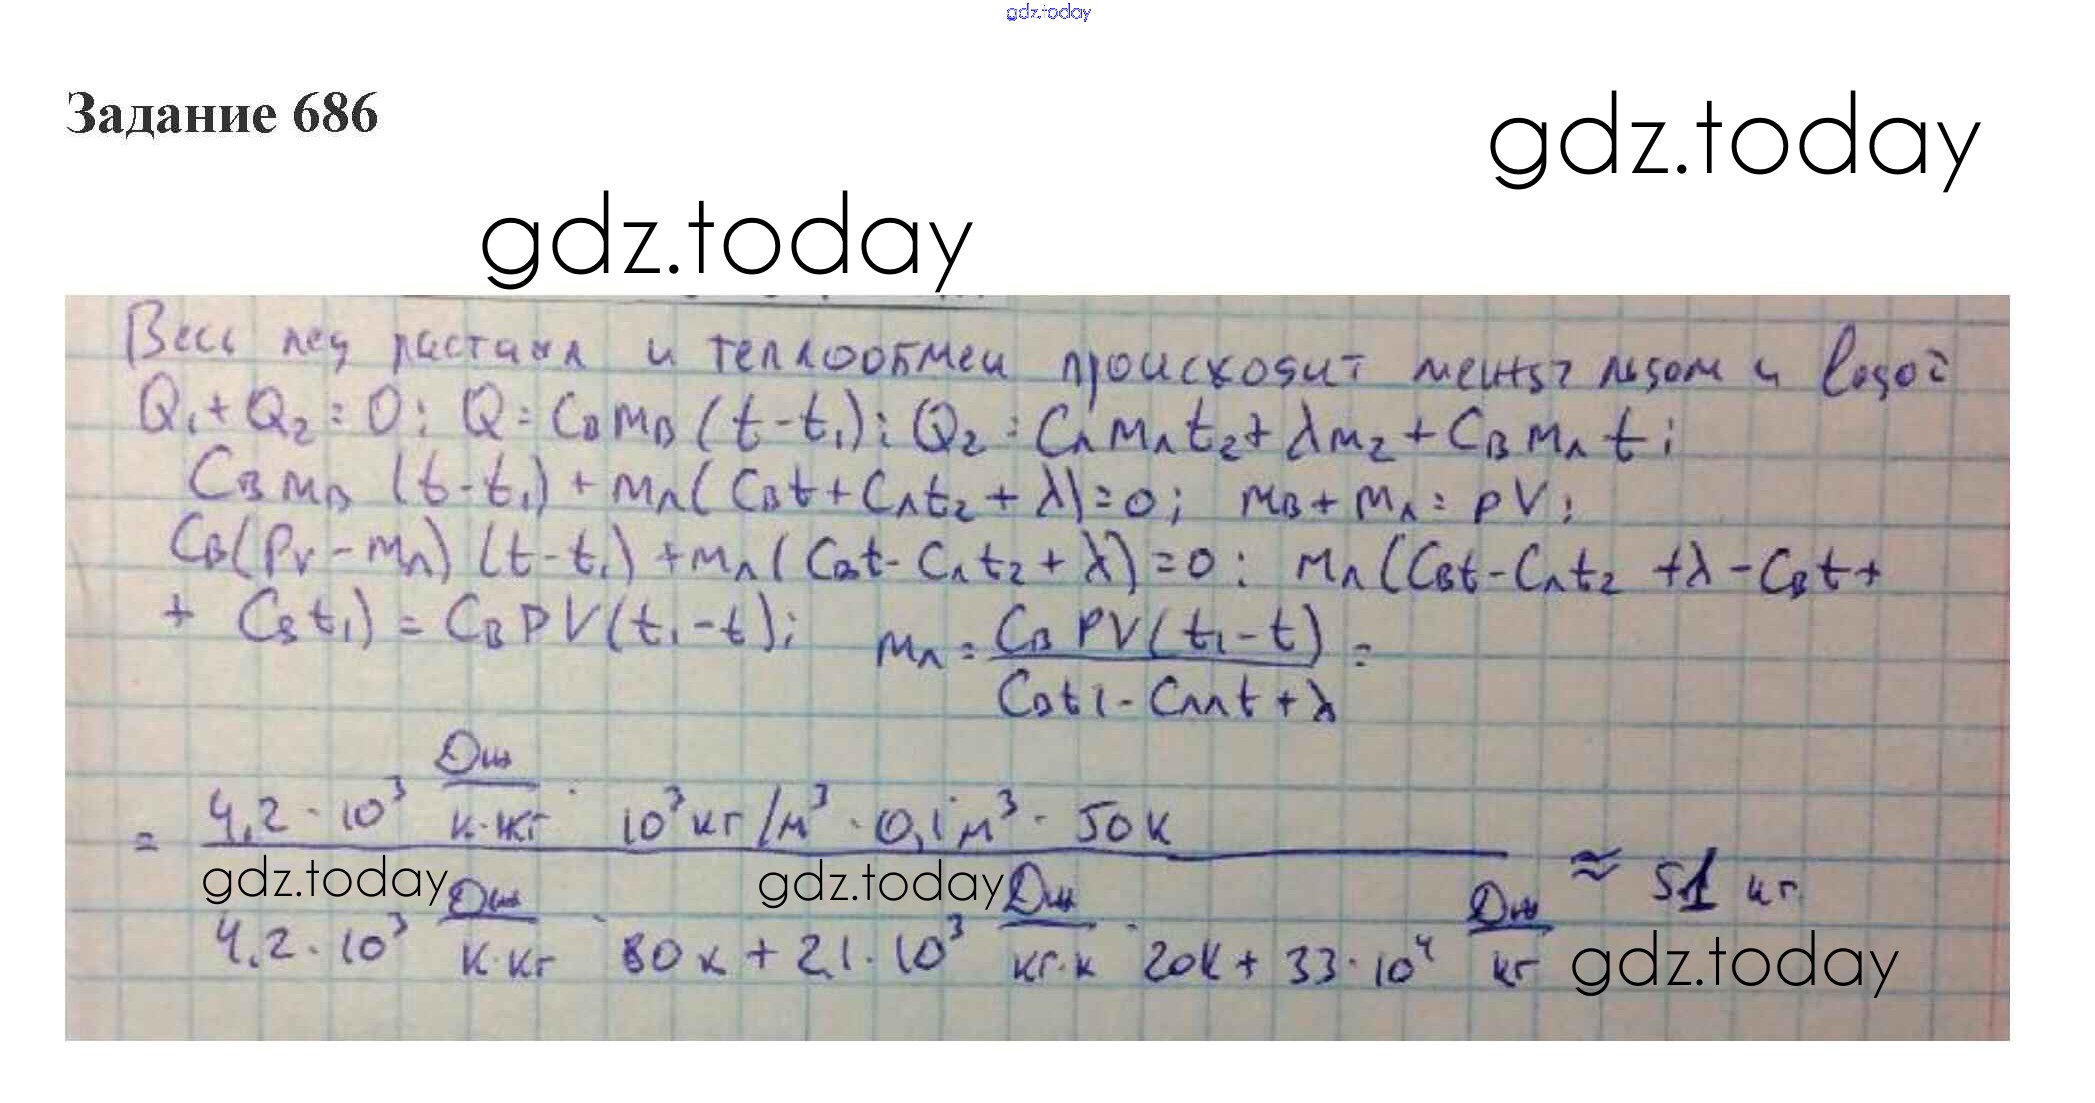 gdz.today
Задание 686
gdz.today
gdz.today
Весь лед растаял и теплообмен происходит между льдом и водой
Q₁ + Q₂ = 0; Q = CвMв (t - t₁); Q₂ = CлMлt₂ + λM₂ + CвMлt;
CвMв (t - t₁) + Mл(Cвt + Cлt₂ + λ) = 0; Mв + Mл = ρV;
Cв(ρV - Mл) (t - t₁) + Mл(Cвt - Cлt₂ + λ) = 0; Mл(Cвt - Cлt₂ + λ - Cвt +
+ Cвt₁) = CвρV(t₁ - t); Mл = CвρV(t₁ - t) / Cвt1 - Cллt + λ =
= 4,2 · 10³ Дж/К·кг · 10³ кг/м³ · 0,1 м³ · 50К
gdz.today gdz.today
4,2 · 10³ Дж/К·кг · 80К + 2,1 · 10³ Дж/кг·К · 20К + 33 · 10⁴ Дж/кг ≈ 51 кг
gdz.today